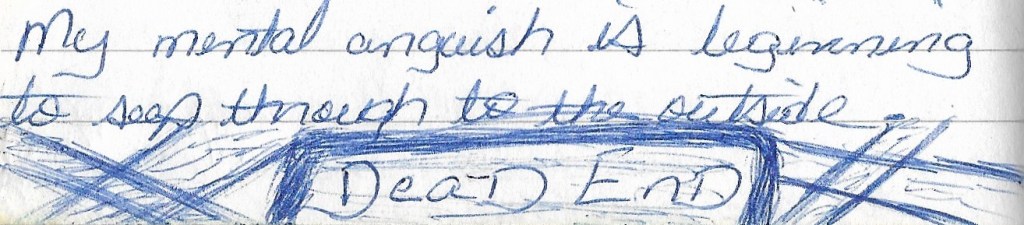 My mental anguish is beginning
to seep through to the outside.
DeaD EnD